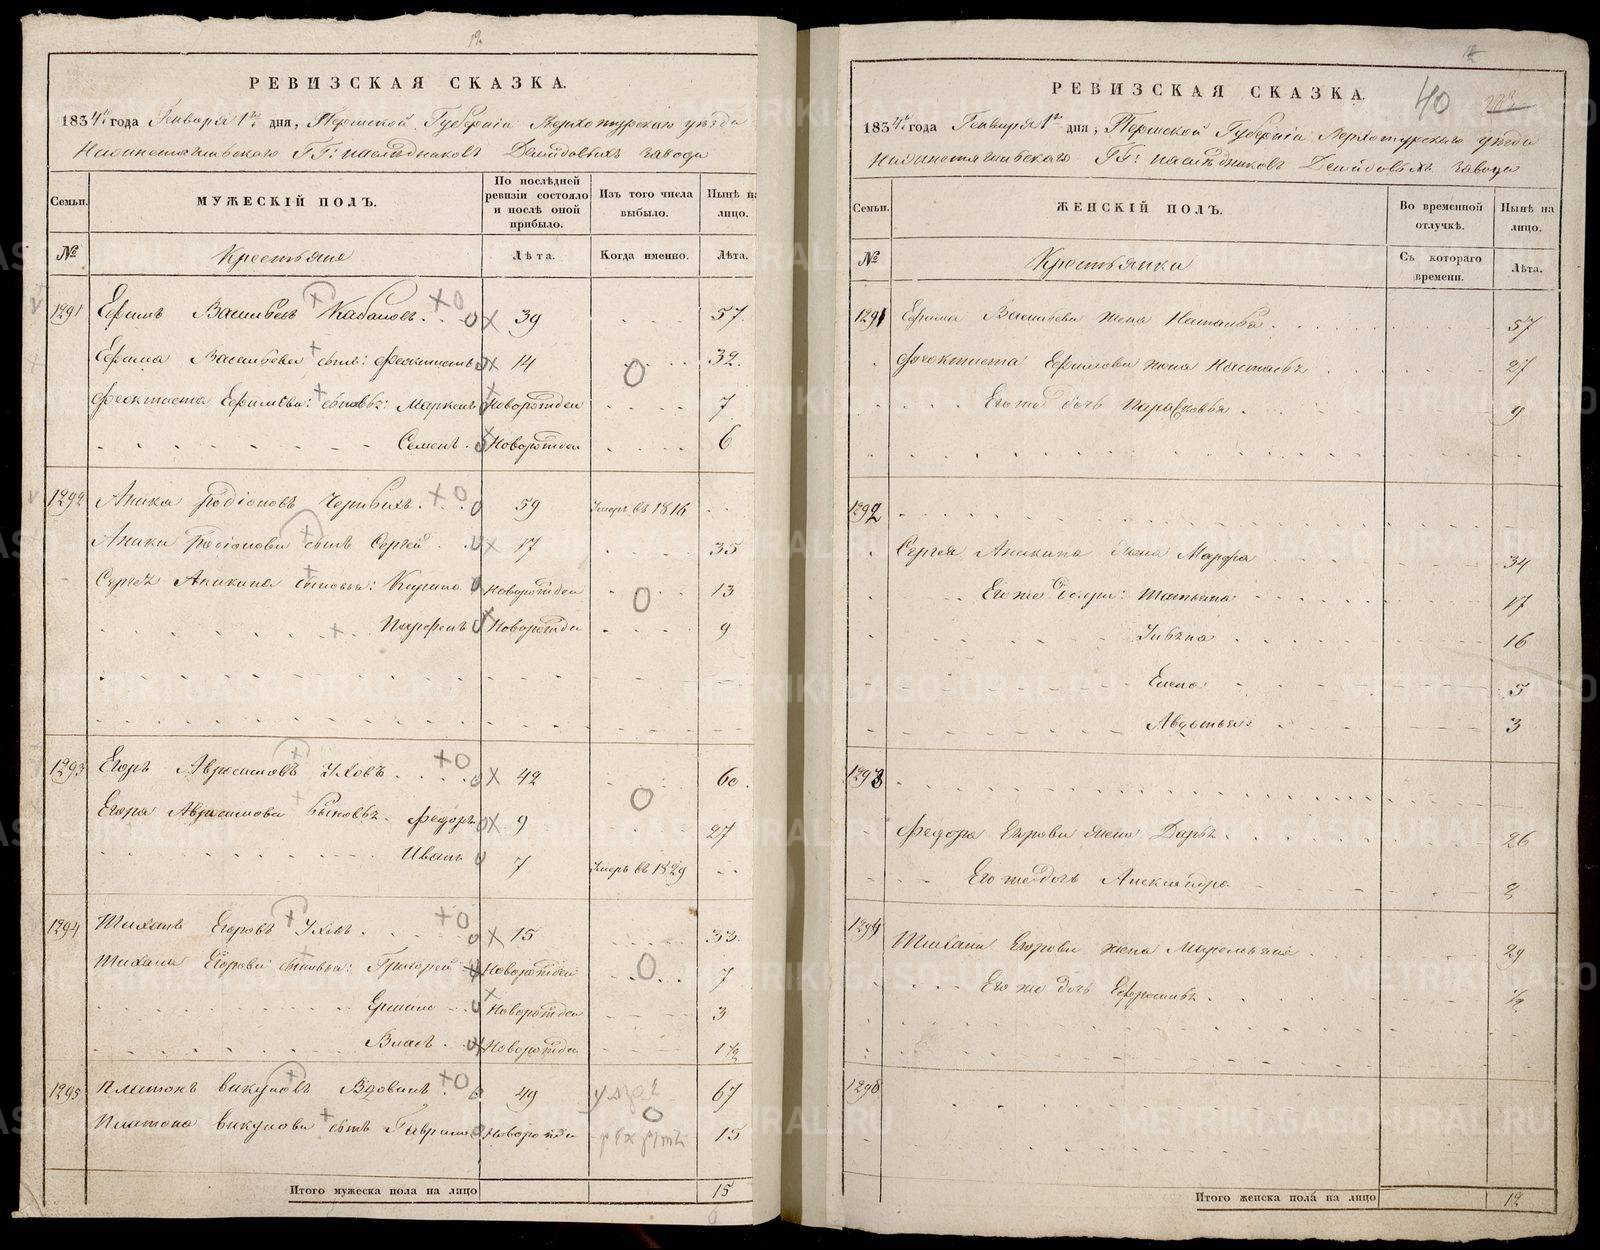 12
РЕВИЗСКАЯ СКАЗКА.
1834го года Генваря 1го дня, Пермской Губернiи Верхотурскаго уѣзда
ГГ: наслѣдниковъ Демидовыхъ завода
Семьи. МУЖЕСКIЙ ПОЛЪ. По послѣдней ревизiи состояло и послѣ оной прибыло. Изъ того числа выбыло. Нынѣ на лицо.
№ Крестьяне Лѣта. Когда именно. Лѣта.
1291 Ефимъ Васильевъ Кабановъ 39 57
Ефима Васильева сынъ: Феоктистъ 14 32
Феоктиста Ефимова: сыновья: Маркелъ Новорожден 7
Семенъ Новорожден 6
1292 Аника Родiоновъ 59 Умеръ въ 1816
Аники Родiонова сынъ Сергей 17 35
Сергея Аникина сыновья: Кирило Новорожден 13
Парфенъ Новорожден 9
1293 Егоръ Уховъ 42 60
Егора сыновья. Федоръ 9 27
Иванъ 7 Умеръ въ 1829
1294 Тихонъ Егоровъ Уховъ 15 33
Тихона Егорова сыновья: Григорей Новорожден 7
Новорожден 3
Власъ Новорожден 1½
1295 Платонъ Викуловъ Вдовинъ 49 67
Платона Викулова сынъ Гаврило Новорожден 15
Итого мужеска пола на лицо 15
12
РЕВИЗСКАЯ СКАЗКА.
40
1834го года Генваря 1го дня, Пермской Губернiи Верхотурскаго уѣзда
ГГ: наслѣдниковъ Демидовыхъ завода
Семьи. ЖЕНСКIЙ ПОЛЪ. Во временной отлучкѣ. Нынѣ на лицо.
№ Крестьянки Съ котораго времени. Лѣта.
1291 Ефима Васильева жена Наталья 57
Феоктиста Ефимова жена Настасья 27
Его же дочь Парасковья 9
1292
Сергея Аникина жена Марфа 34
Его же дочери: Татьяна 17
Ульяна 16
Елена 5
Авдотья 3
1293
Федора Егорова жена Дарья 26
Его же дочь Александра 2
1294 Тихона Егорова жена Маремьяна 29
Его же дочь Ефросинья ½
1295
Итого женска пола на лицо 12